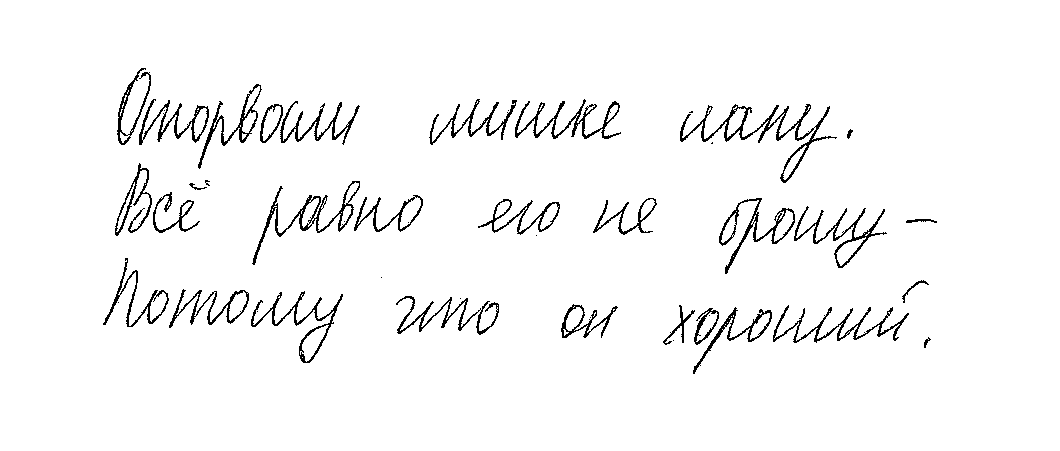 Оторвали мишке лапу.
Всё равно его не брошу –
Потому что он хороший.